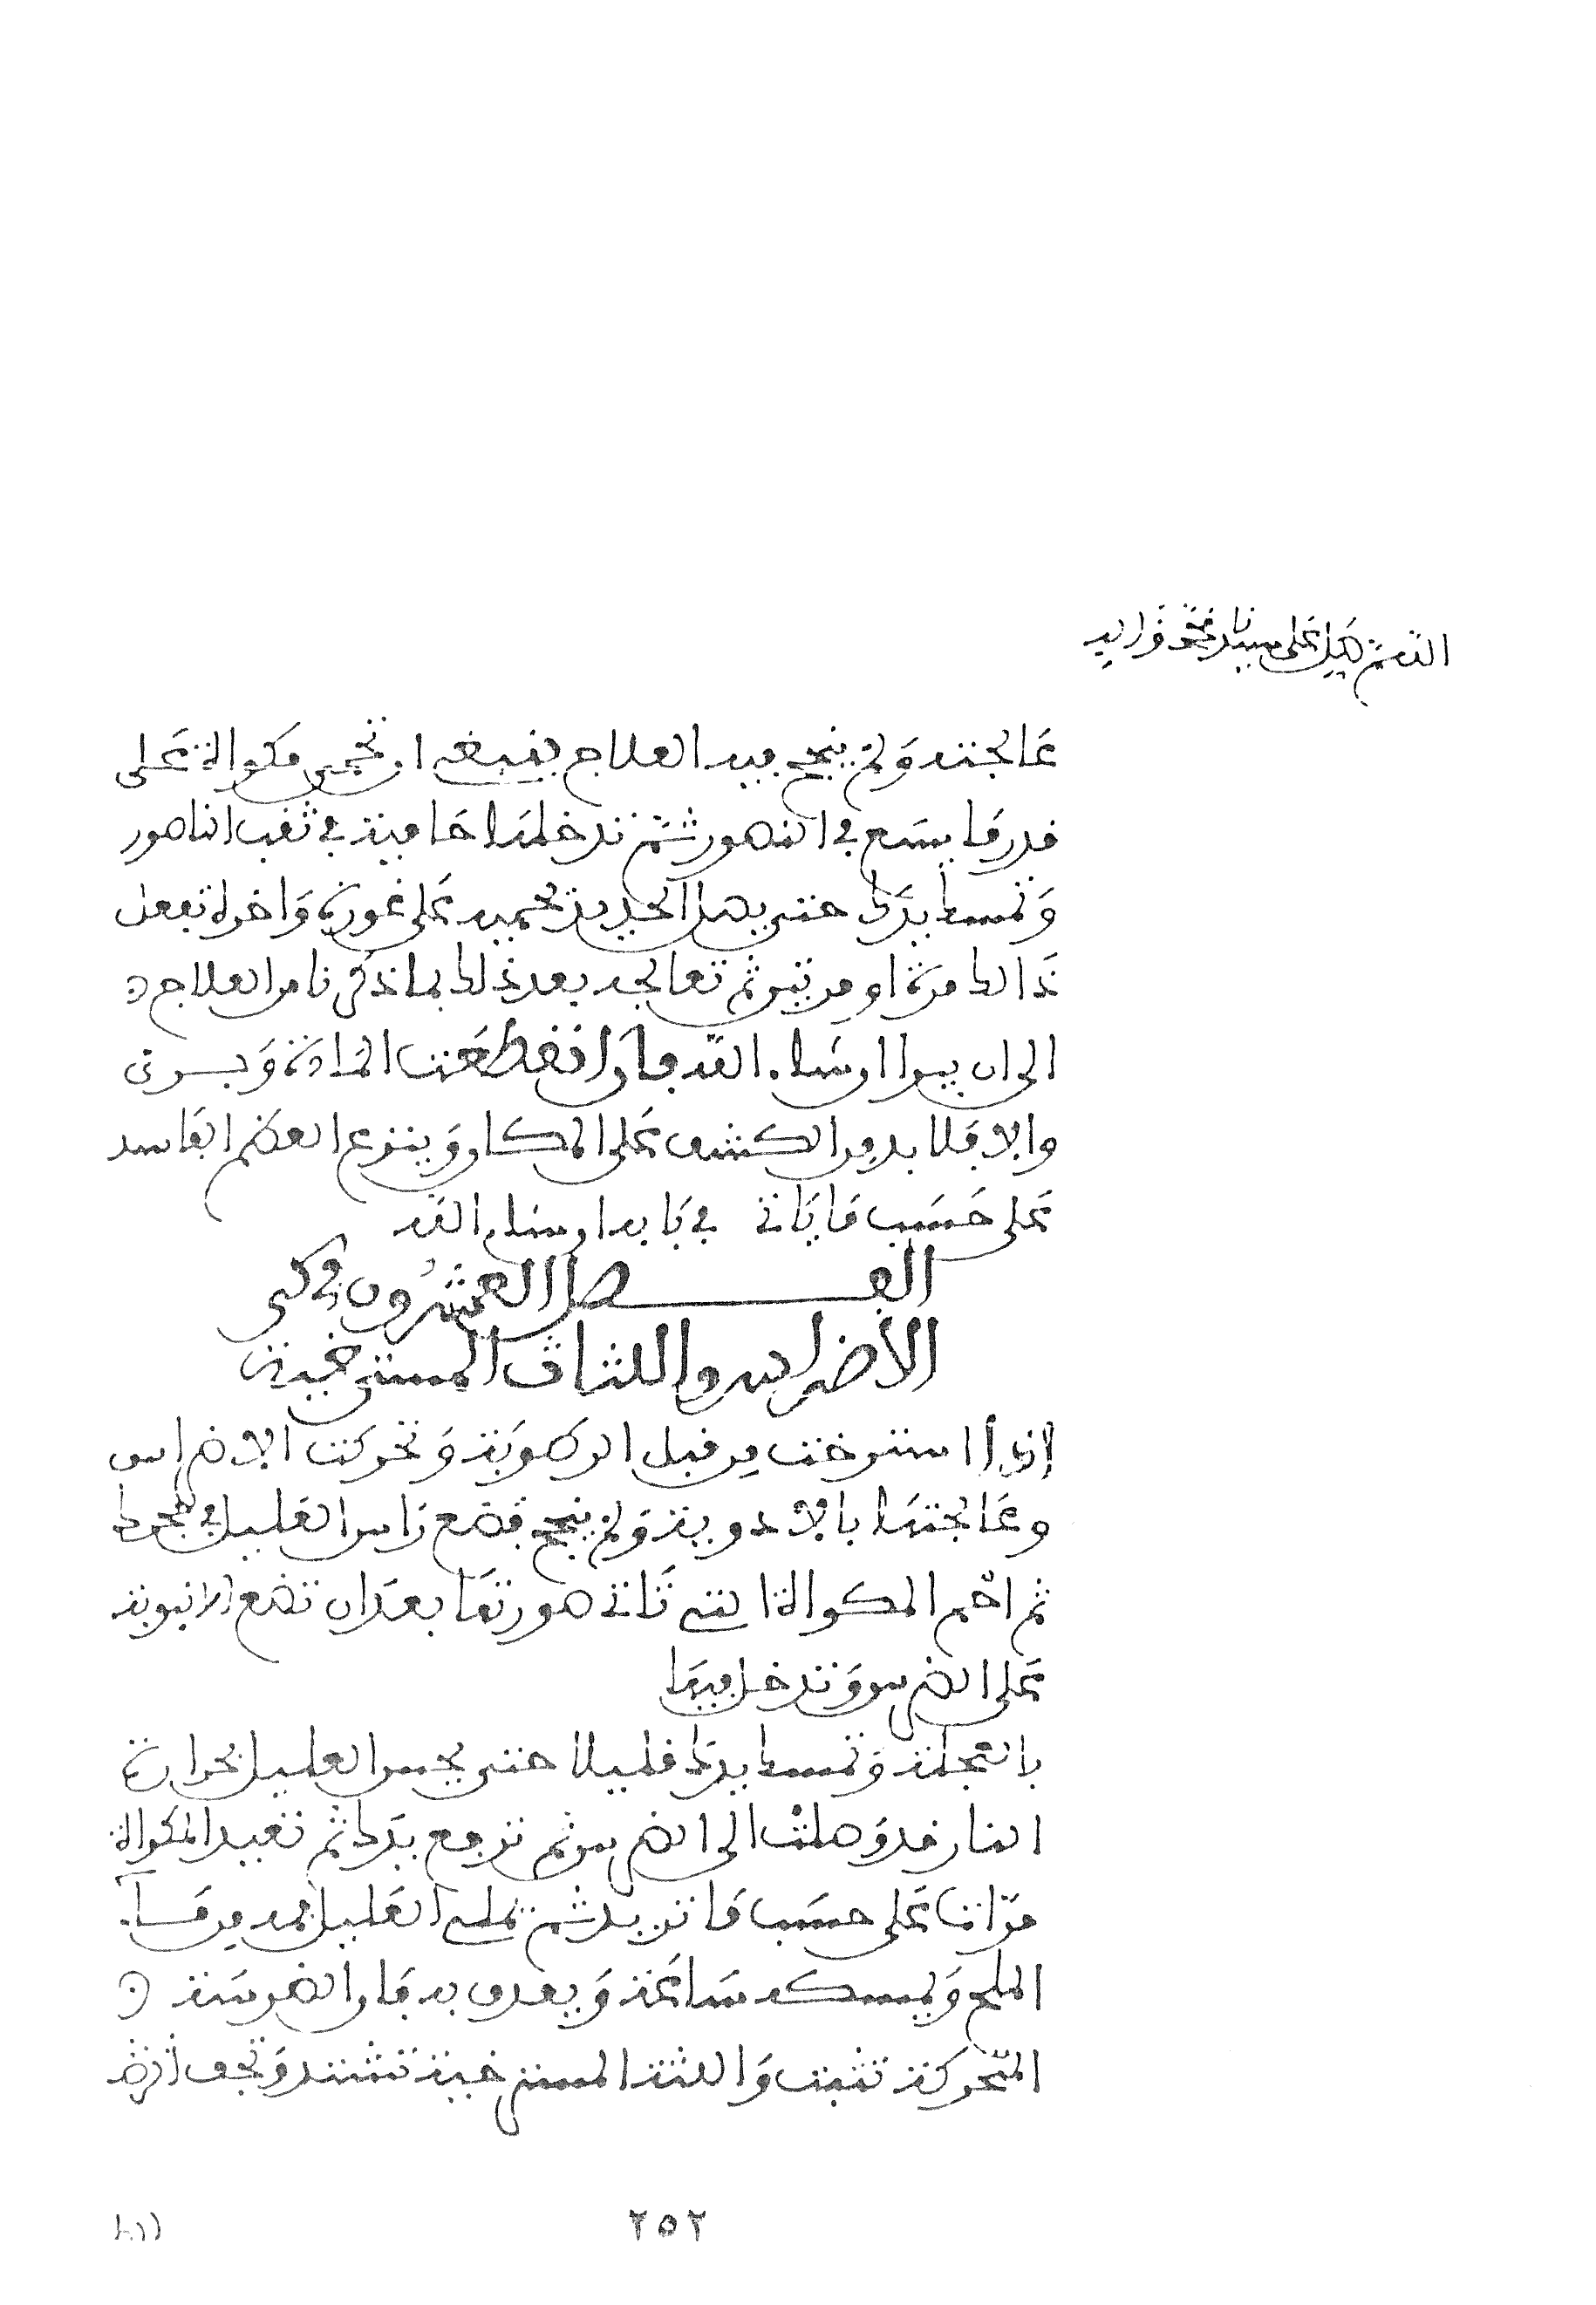 اللهم صل على سيدنا محمد وآله
عالجته ولم ينجح فيه العلاج فينبغي ان تحمي مكواة على
قدر ما يسع في الناصور ثم تدخلها حامية في ثقب الناصور
وتمسك يدك حتى يصل الحديد بحميه على غوره واخره تفعل
ذالك مرة او مرتين ثم تعالجه بعد ذلك بما ذكرنا من العلاج
الى ان يبرا ان شاء الله فان انقطعت المادة وبرئ
والا فلا بد من الكشف على المكان وينزع العظم الفاسد
على حسب ما ياتي في بابه ان شاء الله
الفصل العشرون في كي
الأضراس واللثات المسترخية
إذا استرخت من قبل الرطوبة وتحركت الاضراس
وعالجتها بالادوية ولم ينجح فضع راس العليل في حجرك
ثم احم المكواة التي تاتي صورتها بعد ان تضع الانبوبة
على الضرس وتدخل فيها
بالعجلة وتمسك يدك قليلا حتى يحس العليل بحرارة
النار قد وصلت الى الضرس ثم ترفع يدك ثم تعيد المكواة
مرّات على حسب ما تريد ثم يملى العليل فمه من ماء
الملح ويمسكه ساعة ويقذف به فان الضرسة
المتحركة تثبت واللثة المسترخية تشتد وتجف
٢٥٢